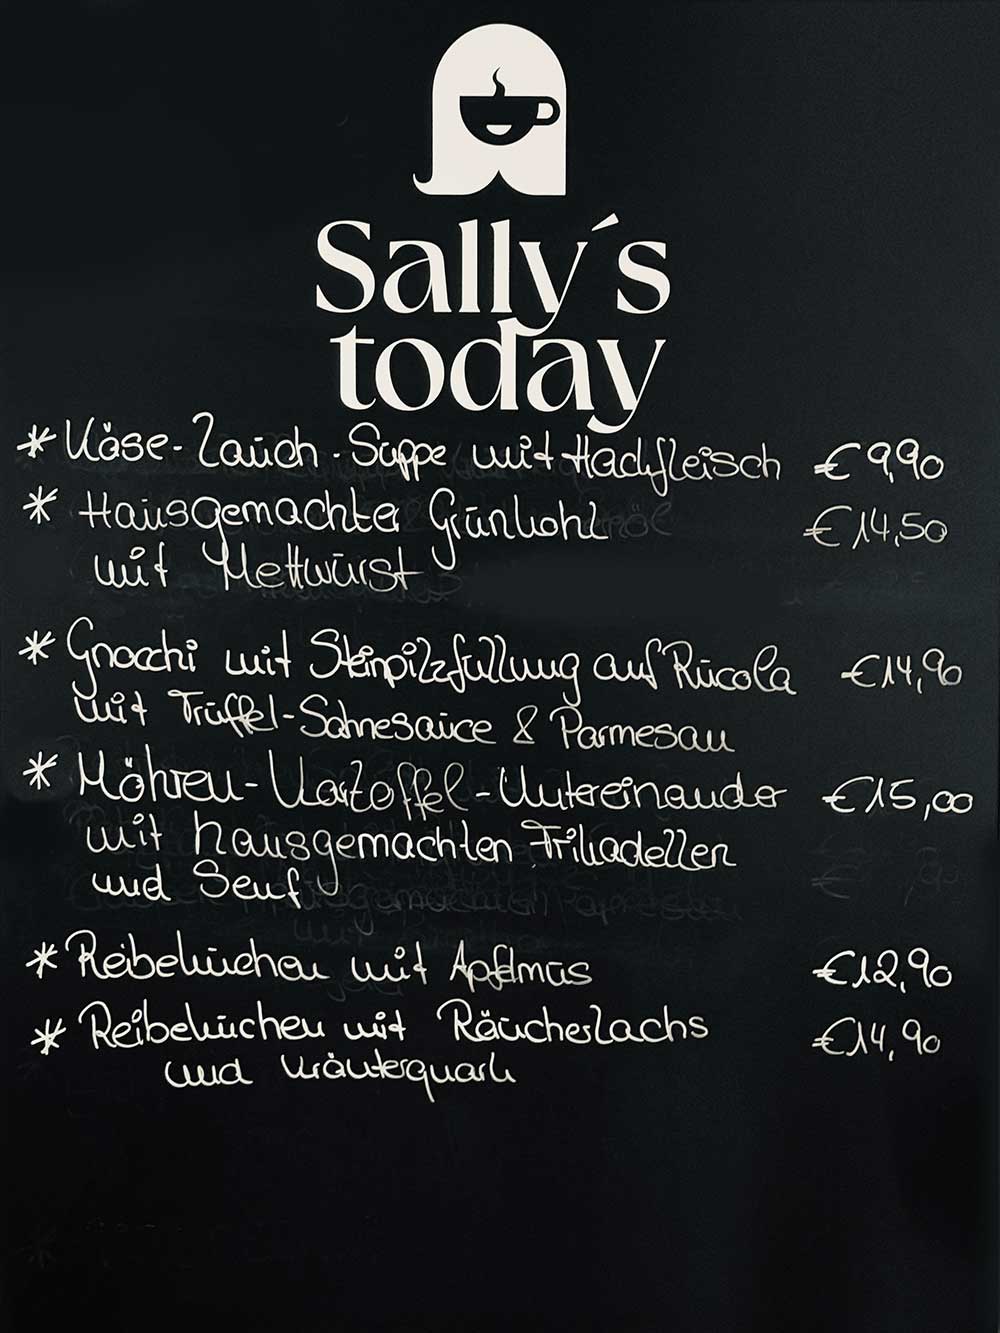 Sally´s
today
* Käse-Lauch-Suppe mit Hackfleisch €9,90
* Hausgemachter Grünkohl €14,50
mit Mettwurst
* Gnocchi mit Steinpilzfüllung auf Rucola €14,90
mit Trüffel-Sahnesauce & Parmesan
* Möhren-Kartoffel-Untereinander €15,00
mit hausgemachten Frikadellen
und Senf
* Reibekuchen mit Apfelmus €12,90
* Reibekuchen mit Räucherlachs €14,90
und Kräuterquark